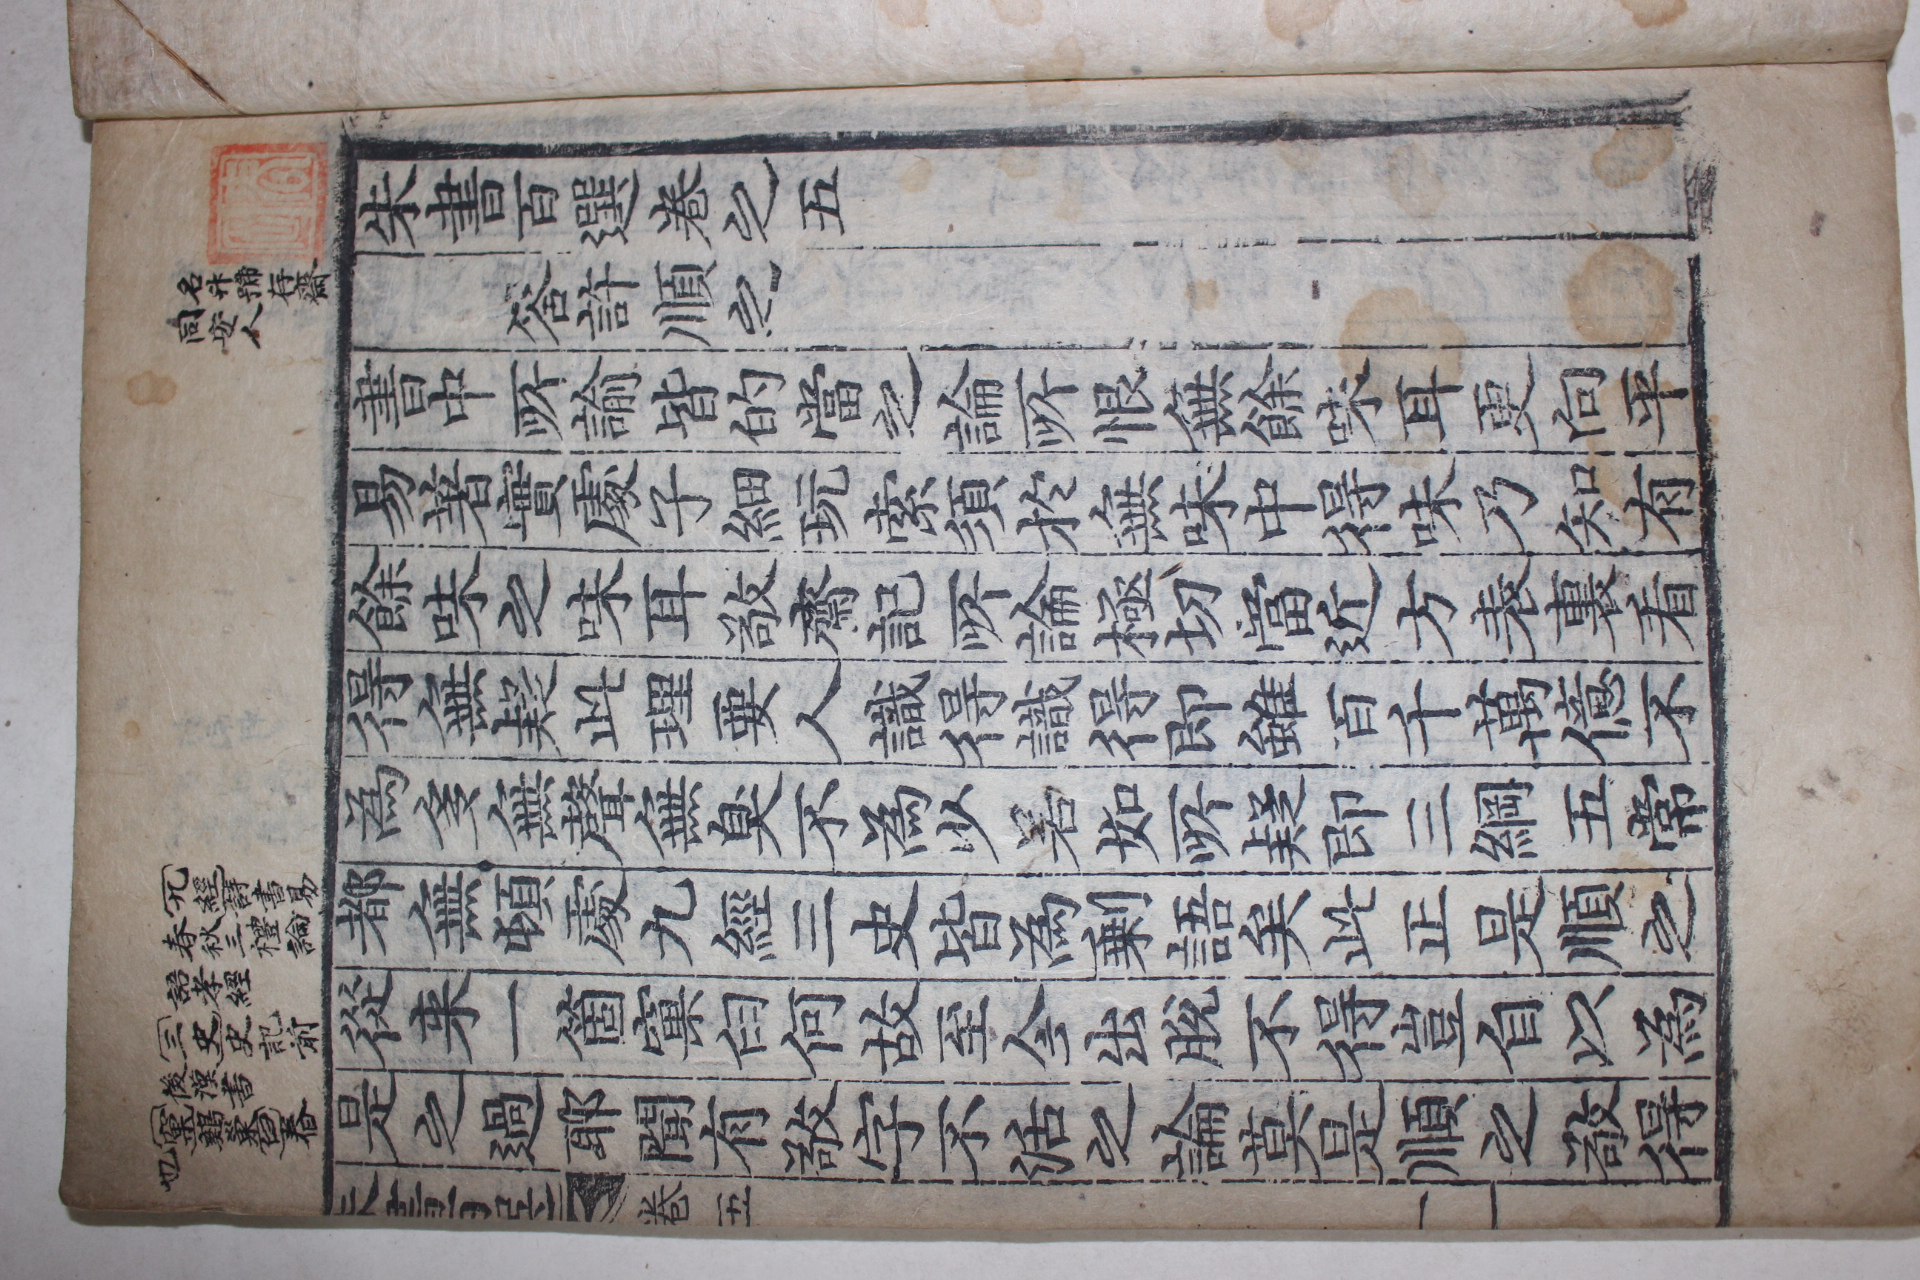 名升號存齋
同安人
九經詩書易
春秋三禮論
語孝經
三史史記前
後漢書
窠鷄巢臼舂
也
朱書百選卷之五
答許順之
書中所諭皆的當之論所恨無餘味耳更向平
易著實處子細玩索須於無味中得味乃知有
餘味之味耳敬齋記所論極切當近方表裏看
得無疑此理要人識得識得即雖百千萬億不
為多無聲無臭不為少若如所疑即三綱五常
都無頓處九經三史皆為剩語矣此正是順之
從来一箇窠臼何故至今出脫不得豈自以為
是之過耶聞有敬字不活之論莫是順之敬得
卷五
一